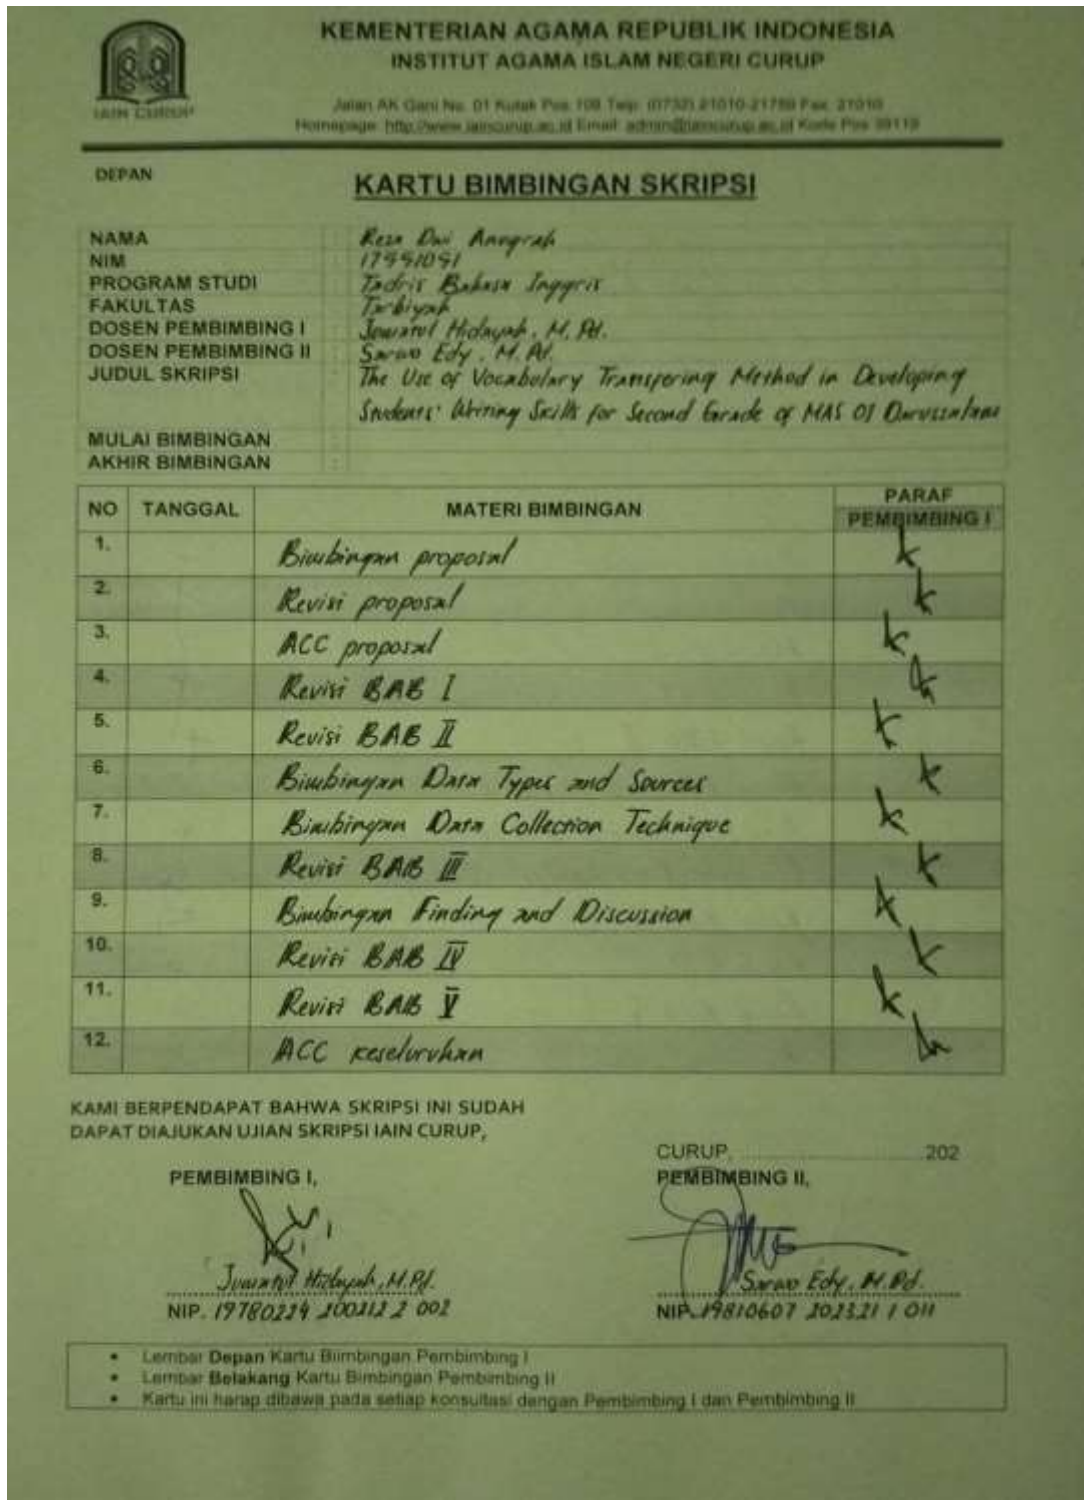 KEMENTERIAN AGAMA REPUBLIK INDONESIA
INSTITUT AGAMA ISLAM NEGERI CURUP
IAIN CURUP
Jalan AK Gani No. 01 Kotak Pos 108 Telp. (0732) 21010-21759 Fax. 21010
Homepage: http://www.iaincurup.ac.id Email: admin@iaincurup.ac.id Kode Pos 39119
DEPAN
KARTU BIMBINGAN SKRIPSI
NAMA : Reza Dwi Anugrah
NIM : 17551051
PROGRAM STUDI : Tadris Bahasa Inggris
FAKULTAS : Tarbiyah
DOSEN PEMBIMBING I : Jumatul Hidayah, M.Pd.
DOSEN PEMBIMBING II : Sarwo Edy, M.Pd.
JUDUL SKRIPSI : The Use of Vocabulary Transfering Method in Developing
Students' Writing Skills for Second Grade of MAS 01 Darussalam
MULAI BIMBINGAN :
AKHIR BIMBINGAN :
NO TANGGAL MATERI BIMBINGAN PARAF
PEMBIMBING I
1. Bimbingan proposal
2. Revisi proposal
3. ACC proposal
4. Revisi BAB I
5. Revisi BAB II
6. Bimbingan Data Types and Sources
7. Bimbingan Data Collection Technique
8. Revisi BAB III
9. Bimbingan Finding and Discussion
10. Revisi BAB IV
11. Revisi BAB V
12. ACC keseluruhan
KAMI BERPENDAPAT BAHWA SKRIPSI INI SUDAH
DAPAT DIAJUKAN UJIAN SKRIPSI IAIN CURUP,
CURUP, ........................ 202
PEMBIMBING I, PEMBIMBING II,
Jumatul Hidayah, M.Pd. Sarwo Edy, M.Pd.
NIP. 19780224 200212 2 002 NIP. 19810607 202321 1 011
• Lembar Depan Kartu Biimbingan Pembimbing I
• Lembar Belakang Kartu Bimbingan Pembimbing II
• Kartu ini harap dibawa pada setiap konsultasi dengan Pembimbing I dan Pembimbing II